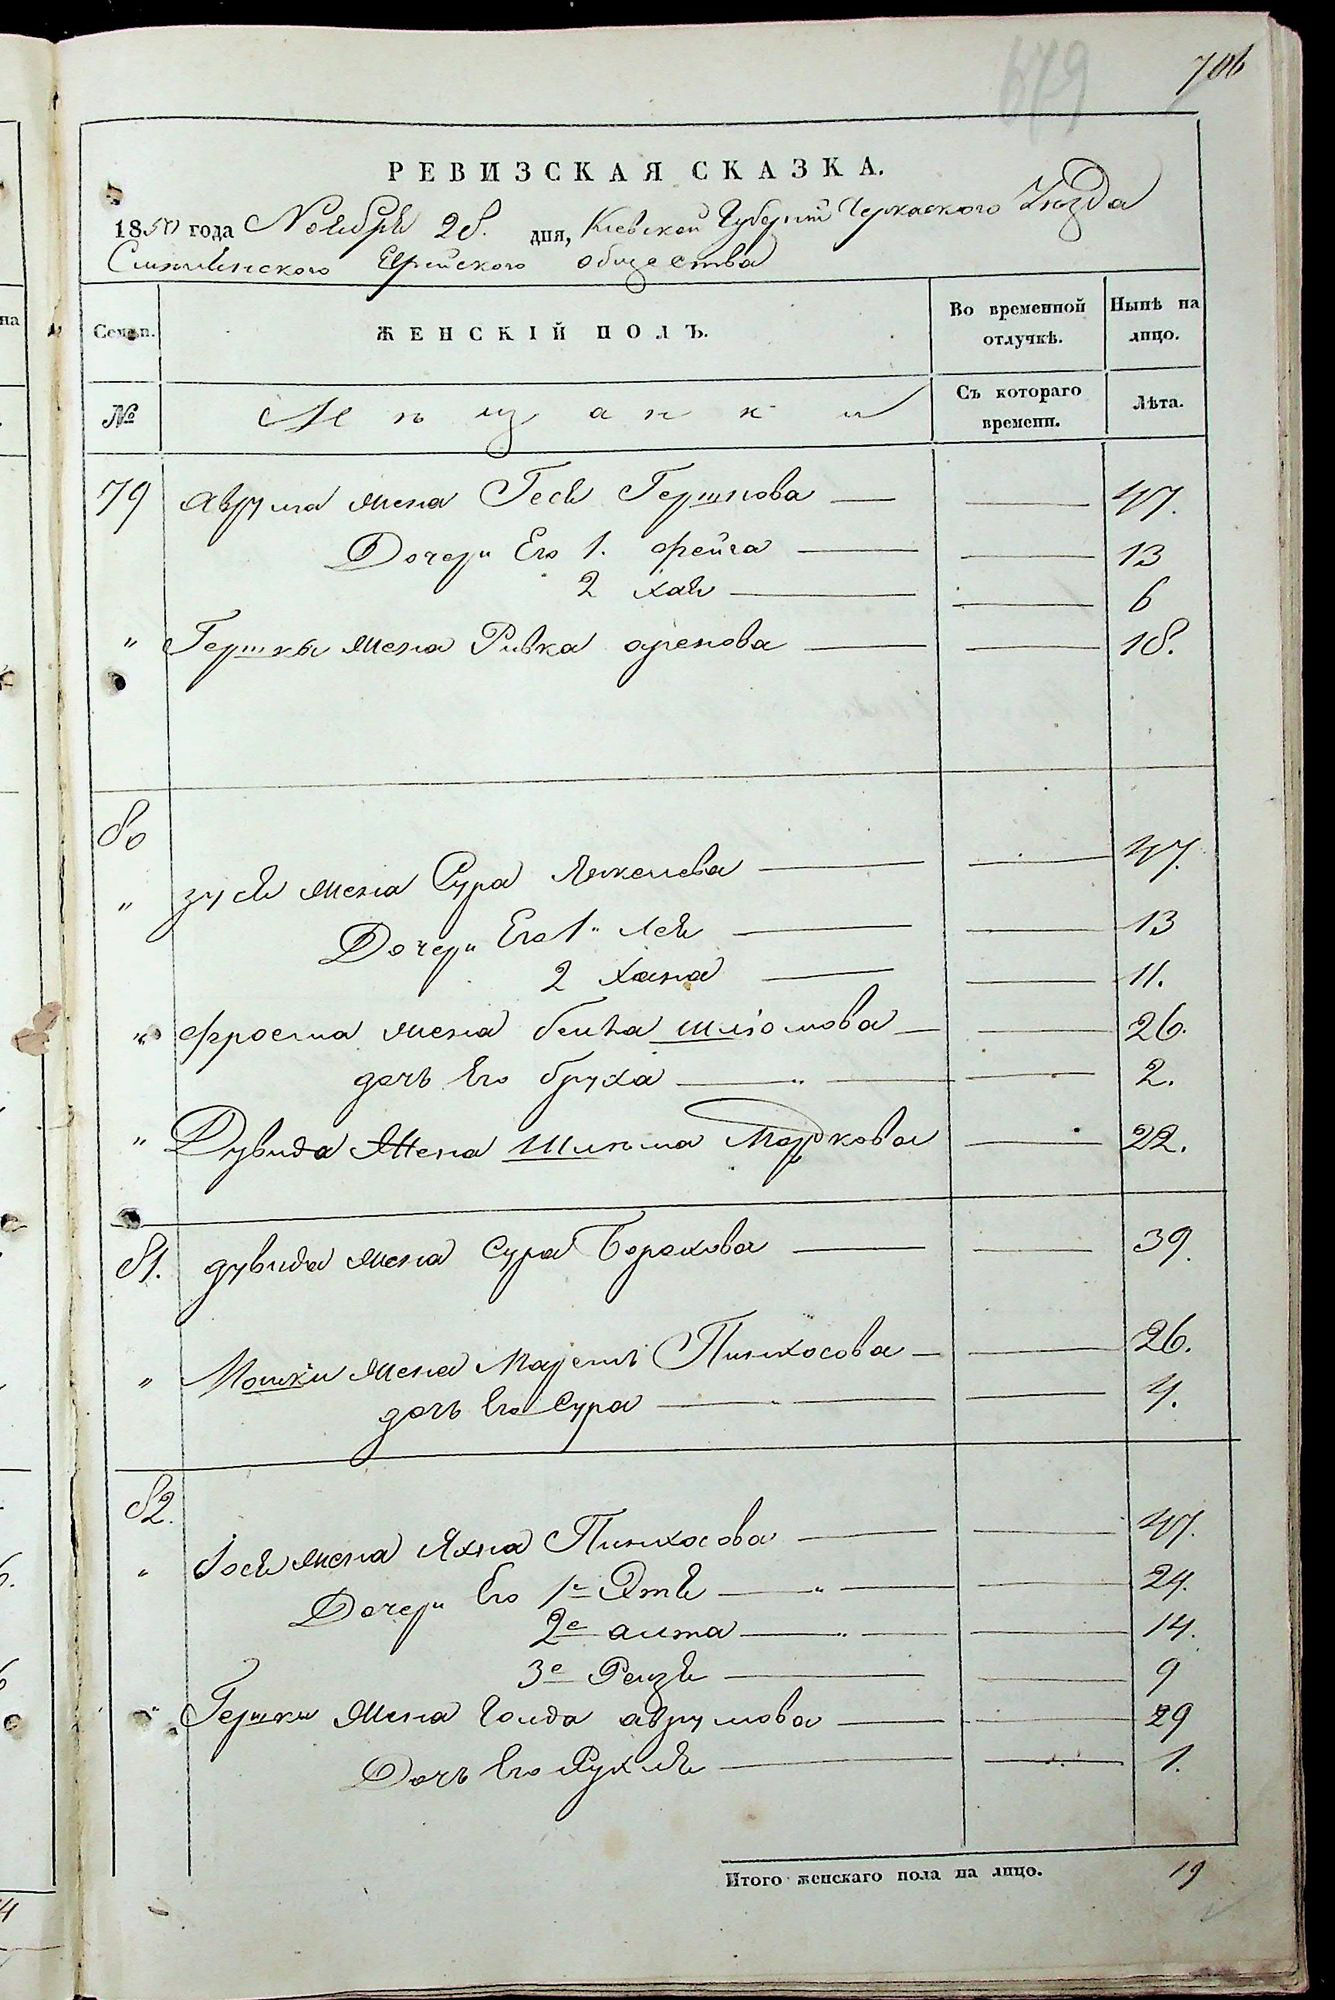 679
706
РЕВИЗСКАЯ СКАЗКА.
1850 года Ноября 28. дня, Киевской Губернии Черкаского Уезда
Смилянского Еврейского общества
Семьи. ЖЕНСКІЙ ПОЛЪ. Во временной отлучкѣ. Нынѣ на лицо.
№ Мѣщанки Съ котораго времени. Лѣта.
79 Аврума жена Гася Гершкова — — 47.
Дочери Его 1. Фейга — — 13
2 Хая — — 6
" Гершки жена Ривка — — 18.
80
" Зуся жена Сура Янкелева — — 47.
Дочери Его 1" Лея — — 13
2 Хана — — 11.
" Фроема жена Бейла Шліомова — — 26.
дочь Его Бруха — " — — 2.
" Дувида Жена Маркова — 22.
81. Дувида жена Сура Борохова — — 39.
" Мошки жена Пинхосова — — 26.
дочь Его Сура — — 4.
82.
" Іося жена Яхна Пинхосова — — 47.
Дочери Его 1е Этя — " — — 24.
2е алта — " — — 14.
3е Рейзя — — 9
" Гершки Жена Голда аврумова — — 29
Дочь Его Рухля — — 1.
Итого женскаго пола на лицо. 19